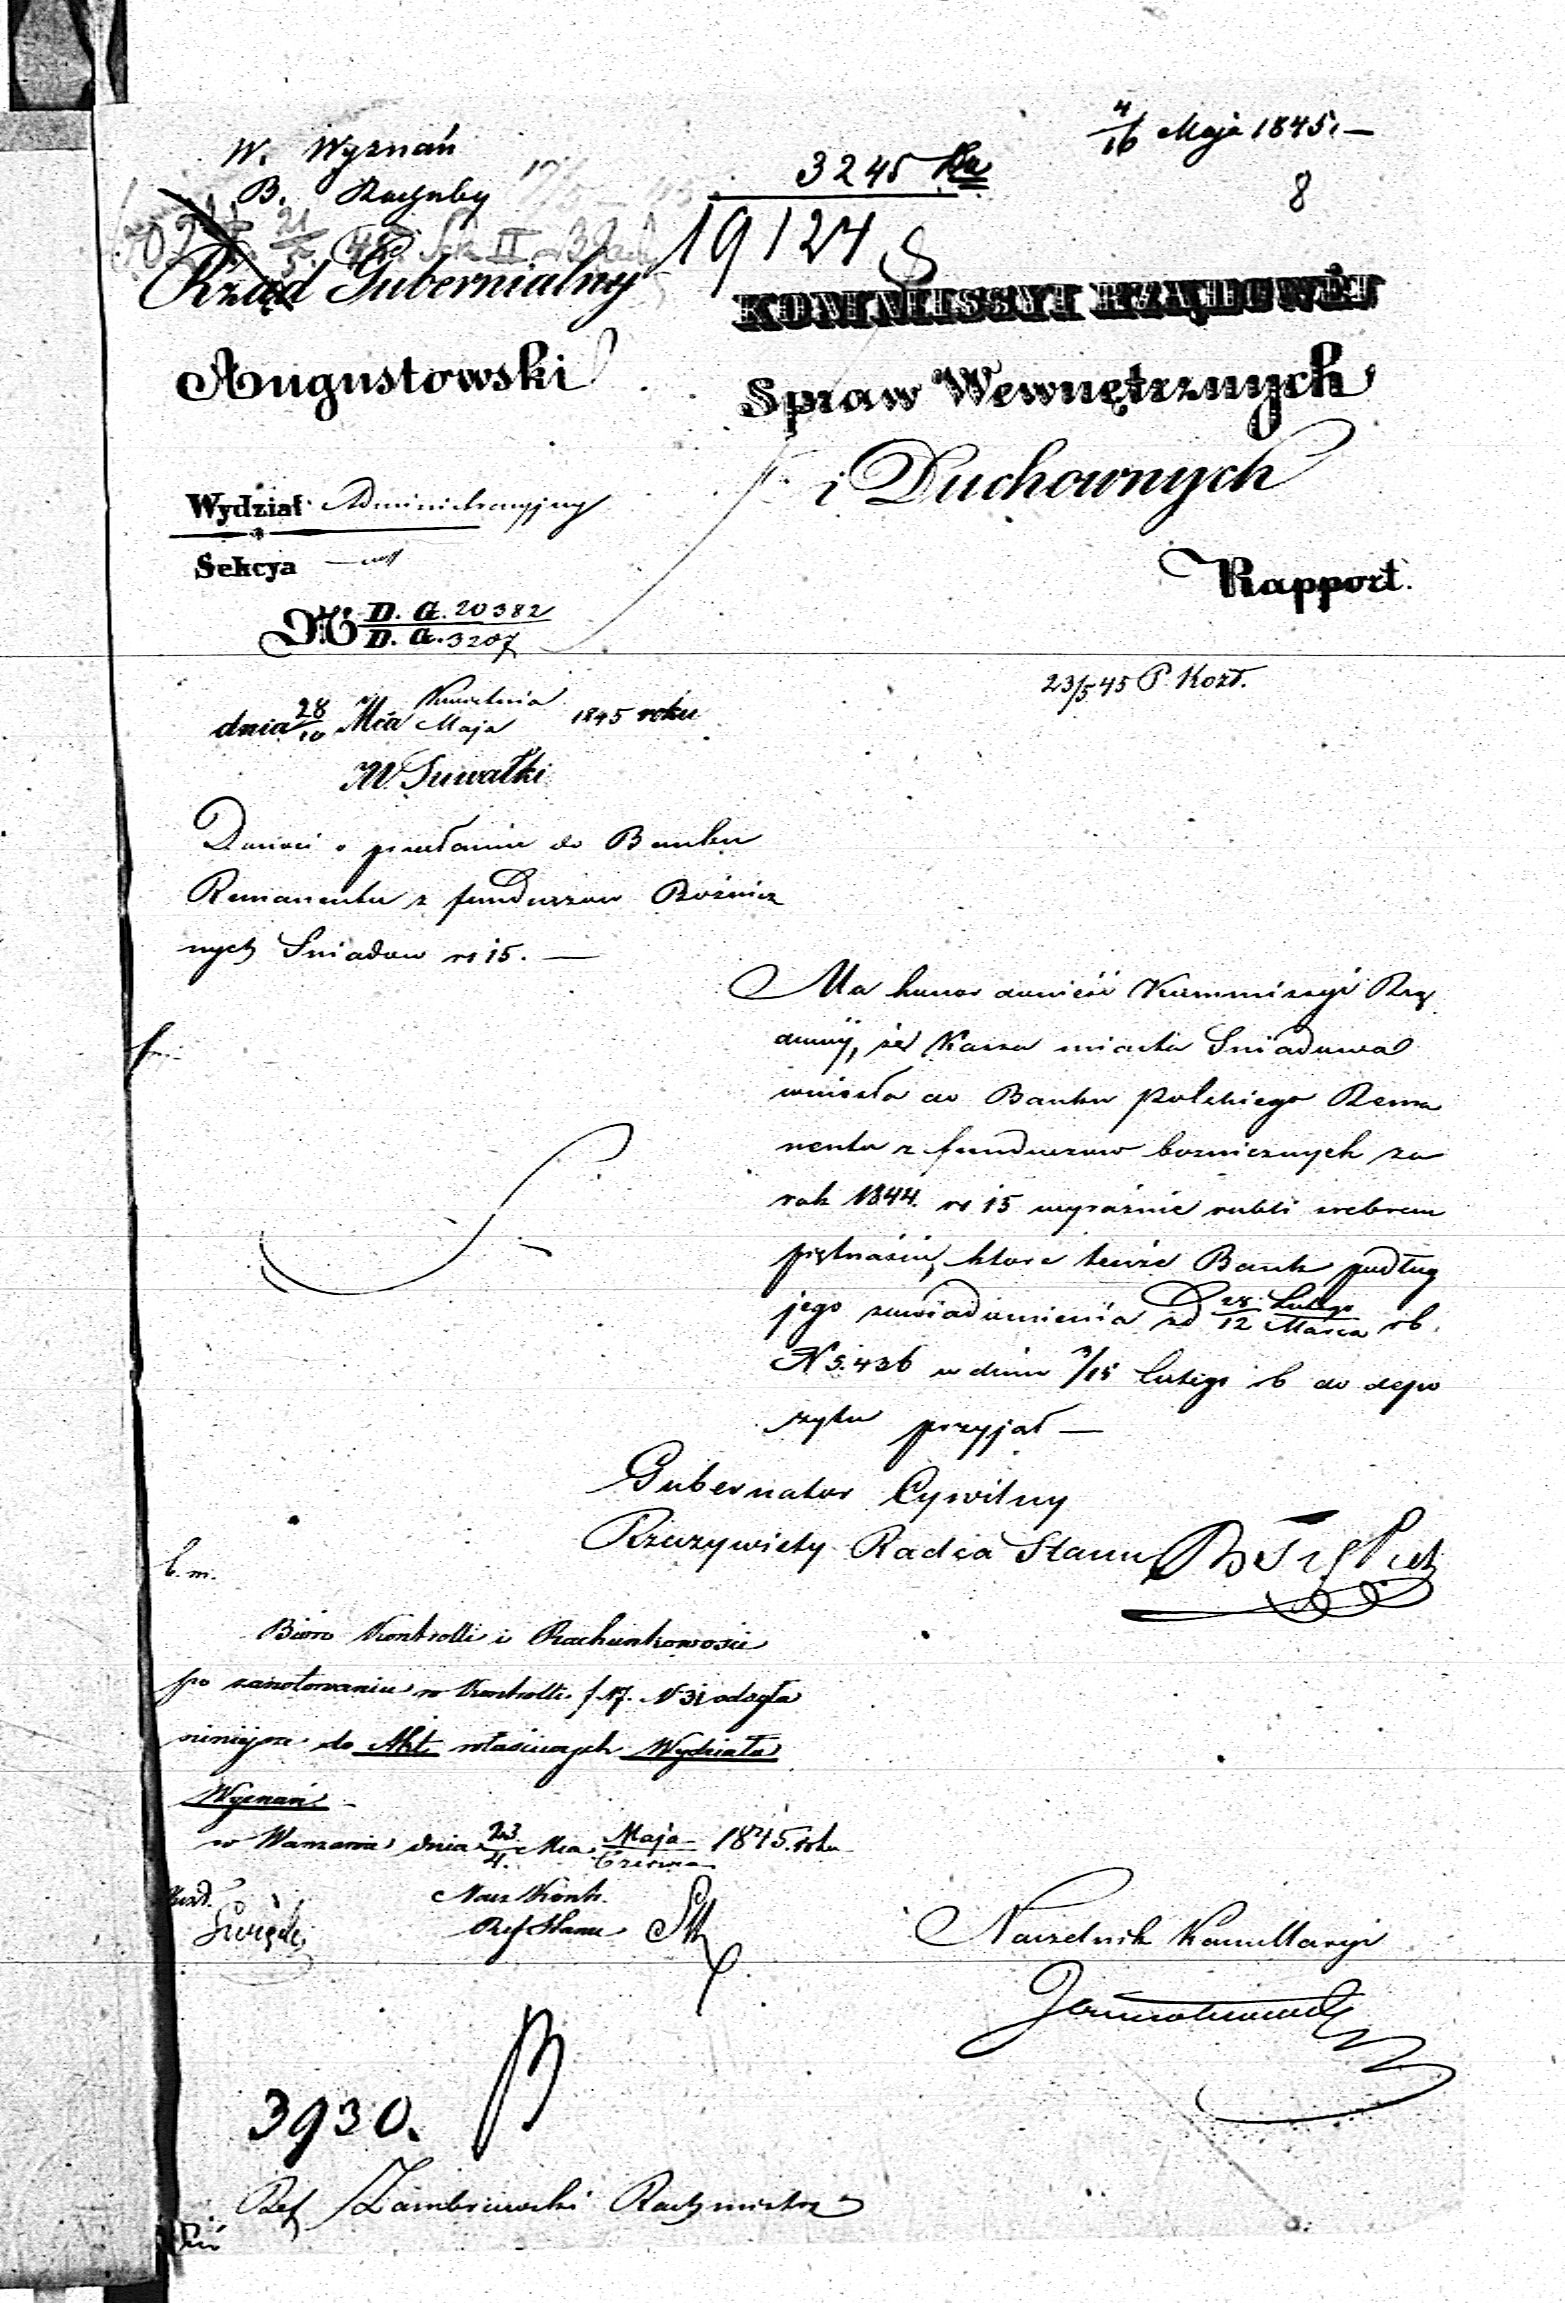 4/16 Maja 1845. —
W. Wyznań
B. Rachuby
3245
8
19124
Rząd Gubernialny
Augustowski
KOMMISSYI RZĄDOWÉJ
Spraw Wewnętrznych
i Duchownych
Wydział Administracyjny
Sekcya
Rapport.
№ D. G. 20382 / D. G. 3207
23/5 45 P. Kozł.
dnia 28/10 Mca Kwietnia / Maja 1845 roku
M. Suwałki
Donosi o przesłaniu do Banku
Remanentu z funduszow Bożnicz
nych Sniadow rs 15. —
Ma honor donieść Kommissyi Rzą
dowej, że Kassa miasta Sniadowa
wniosła do Banku Polskiego Rema
nentu z funduszow boznicznych za
rok 1844. rs 15 wyraźnie rubli srebrem
piętnaście, ktore tenże Bank podług
jego zawiadomienia z d 28 Lutego / 12 Marca rb.
N 5.436 w dniu 3/15 Lutego rb do depo
zytu przyjał —
Gubernator Cywilny
Rzeczywisty Radca Stanu
b. m.
Bióro Kontrolli i Rachunkowości
po zanotowaniu w Kontrolli f 17. N 31 odsyła
niniejsze do Akt właściwych Wydziału
Wyznań. —
w Warszawie dnia 23/4. Mca Maja / Czerwca 1845. roku
Nacz Kontr.
Ref Stanu
Naczelnik Kancellaryi
3930.
Ref Zambrzucki Rachmistrz